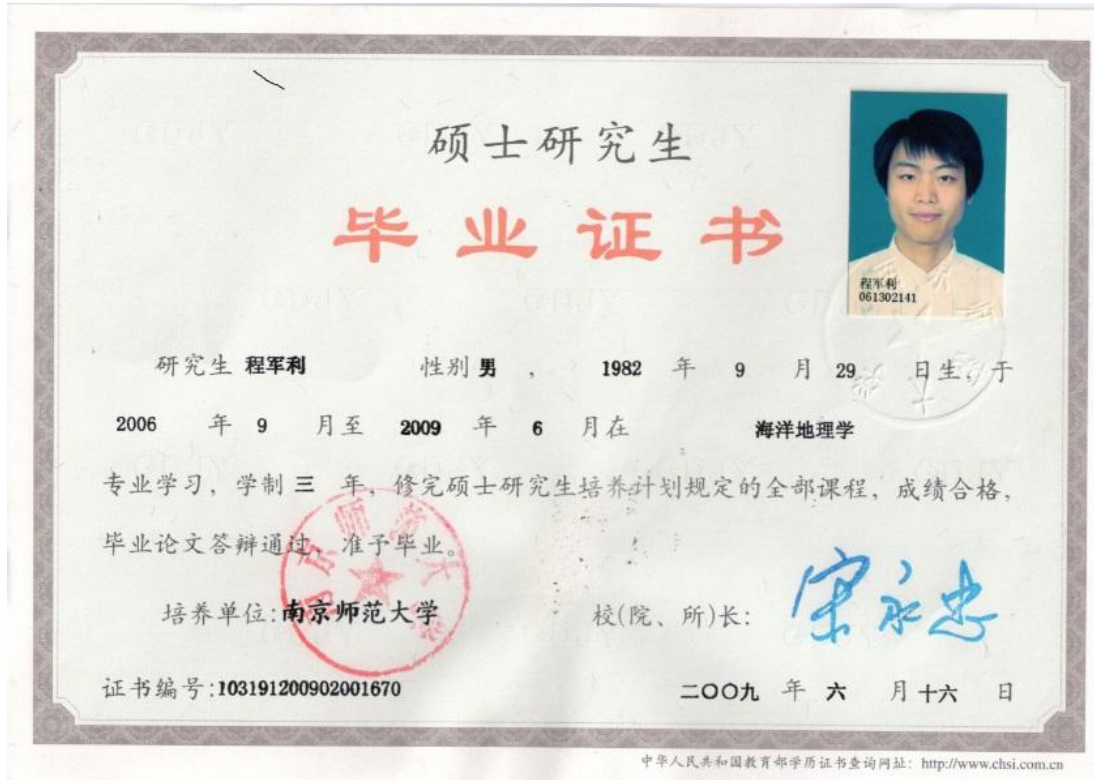 硕士研究生
毕业证书
程军利
061302141
研究生 程军利 性别 男 , 1982 年 9 月 29 日生,于
2006 年 9 月至 2009 年 6 月在 海洋地理学
专业学习,学制 三 年,修完硕士研究生培养计划规定的全部课程,成绩合格,
毕业论文答辩通过,准予毕业。
南京师范大学
培养单位:南京师范大学 校(院、所)长: 宋永忠
证书编号:103191200902001670 二〇〇九 年 六 月 十六 日
中华人民共和国教育部学历证书查询网址: http://www.chsi.com.cn